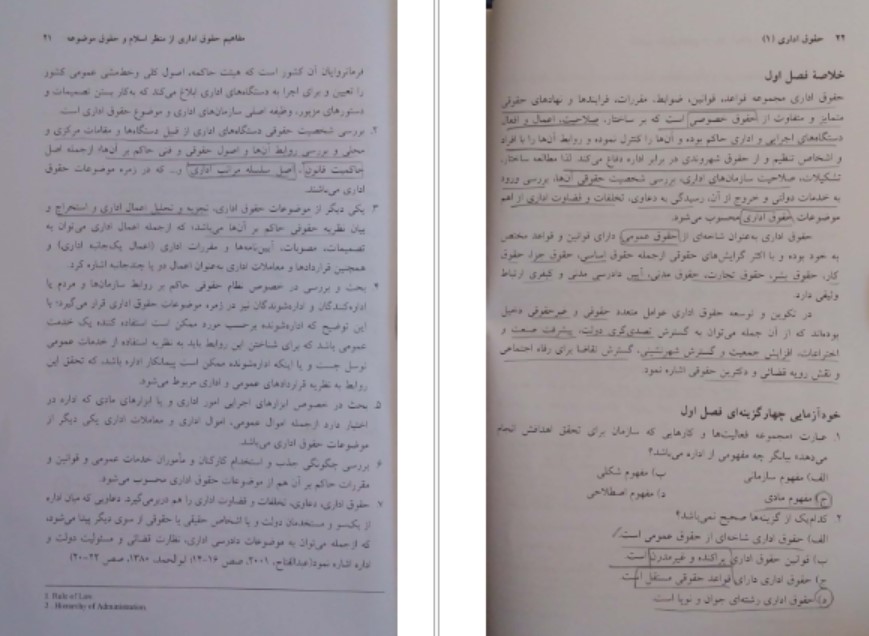 مفاهیم حقوق اداری از منظر اسلام و حقوق موضوعه ۲۱
فرمانروایان آن کشور است که هیئت حاکمه، اصول کلی وخط‌مشی عمومی کشور
را تعیین و برای اجرا به دستگاه‌های اداری ابلاغ می‌کند که به‌کار بستن تصمیمات و
دستورهای مزبور، وظیفه اصلی سازمان‌های اداری و موضوع حقوق اداری است.
۲. بررسی شخصیت حقوقی دستگاه‌های اداری از قبیل دستگاه‌ها و مقامات مرکزی و
محلی و بررسی روابط آن‌ها و اصول حقوقی و فنی حاکم بر آن‌ها؛ ازجمله اصل
حاکمیت قانون، اصل سلسله مراتب اداری و... که در زمره موضوعات حقوق
اداری می‌باشند.
۳. یکی دیگر از موضوعات حقوق اداری، تجزیه و تحلیل اعمال اداری و استخراج و
بیان نظریه حقوقی حاکم بر آن‌ها می‌باشد؛ که ازجمله اعمال اداری می‌توان به
تصمیمات، مصوبات، آیین‌نامه‌ها و مقررات اداری (اعمال یک‌جانبه اداری) و
همچنین قراردادها و معاملات اداری به‌عنوان اعمال دو یا چندجانبه اشاره کرد.
۴. بحث و بررسی در خصوص نظام حقوقی حاکم بر روابط سازمان‌ها و مردم یا
اداره‌کنندگان و اداره‌شوندگان نیز در زمره موضوعات حقوق اداری قرار می‌گیرد؛ با
این توضیح که اداره‌شونده برحسب مورد ممکن است استفاده کننده یک خدمت
عمومی باشد که برای شناختن این روابط باید به نظریه استفاده از خدمات عمومی
توسل جست و یا اینکه اداره‌شونده ممکن است پیمانکار اداره باشد، که تحقق این
روابط به نظریه قراردادهای عمومی و اداری مربوط می‌شود.
۵. بحث در خصوص ابزارهای اجرایی امور اداری و یا ابزارهای مادی که اداره در
اختیار دارد ازجمله اموال عمومی، اموال اداری و معاملات اداری یکی دیگر از
موضوعات حقوق اداری می‌باشد.
۶. بررسی چگونگی جذب و استخدام کارکنان و مأموران خدمات عمومی و قوانین و
مقررات حاکم بر آن هم از موضوعات حقوق اداری محسوب می‌شود.
۷. حقوق اداری، دعاوی، تخلفات و قضاوت اداری را هم دربرمی‌گیرد. دعاویی که میان اداره
از یک‌سو و مستخدمان دولت و یا اشخاص حقیقی یا حقوقی از سوی دیگر پیدا می‌شود،
که ازجمله می‌توان به موضوعات دادرسی اداری، نظارت قضائی و مسئولیت دولت و
اداره اشاره نمود(عبدالفتاح، ۲۰۰۱، صص ۱۶-۱۴؛ ابوالحمد، ۱۳۸۰، صص ۲۲-۲۰)
1. Rule of Law
2. Hierarchy of Administration
۲۲ حقوق اداری (۱)
خلاصهٔ فصل اول
حقوق اداری مجموعه قواعد، قوانین، ضوابط، مقررات، فرایندها و نهادهای حقوقی
متمایز و متفاوت از حقوق خصوصی است که بر ساختار، صلاحیت، اعمال و افعال
دستگاه‌های اجرایی و اداری حاکم بوده و آن‌ها را کنترل نموده و روابط آن‌ها را با افراد
و اشخاص تنظیم و از حقوق شهروندی در برابر اداره دفاع می‌کند. لذا مطالعه ساختار،
تشکیلات، صلاحیت سازمان‌های اداری، بررسی شخصیت حقوقی آن‌ها، بررسی ورود
به خدمات دولتی و خروج از آن، رسیدگی به دعاوی، تخلفات و قضاوت اداری از اهم
موضوعات حقوق اداری محسوب می‌شود.
حقوق اداری به‌عنوان شاخه‌ای از حقوق عمومی دارای قوانین و قواعد مختص
به خود بوده و با اکثر گرایش‌های حقوقی ازجمله حقوق اساسی، حقوق جزا، حقوق
کار، حقوق بشر، حقوق تجارت، حقوق مدنی، آیین دادرسی مدنی و کیفری ارتباط
وثیقی دارد.
در تکوین و توسعه حقوق اداری عوامل متعدد حقوقی و غیرحقوقی دخیل
بوده‌اند که از آن جمله می‌توان به گسترش تصدی‌گری دولت، پیشرفت صنعت و
اختراعات، افزایش جمعیت و گسترش شهرنشینی، گسترش تقاضا برای رفاه اجتماعی
و نقش رویه قضائی و دکترین حقوقی اشاره نمود.
خودآزمایی چهارگزینه‌ای فصل اول
۱. عبارت «مجموعه فعالیت‌ها و کارهایی که سازمان برای تحقق اهدافش انجام
می‌دهد» بیانگر چه مفهومی از اداره می‌باشد؟
الف) مفهوم سازمانی ب) مفهوم شکلی
ج) مفهوم مادی د) مفهوم اصطلاحی
۲. کدام‌یک از گزینه‌ها صحیح نمی‌باشد؟
الف) حقوق اداری شاخه‌ای از حقوق عمومی است.
ب) قوانین حقوق اداری پراکنده و غیرمدون است
ج) حقوق اداری دارای قواعد حقوقی مستقل است
د) حقوق اداری رشته‌ای جوان و نوپا است.